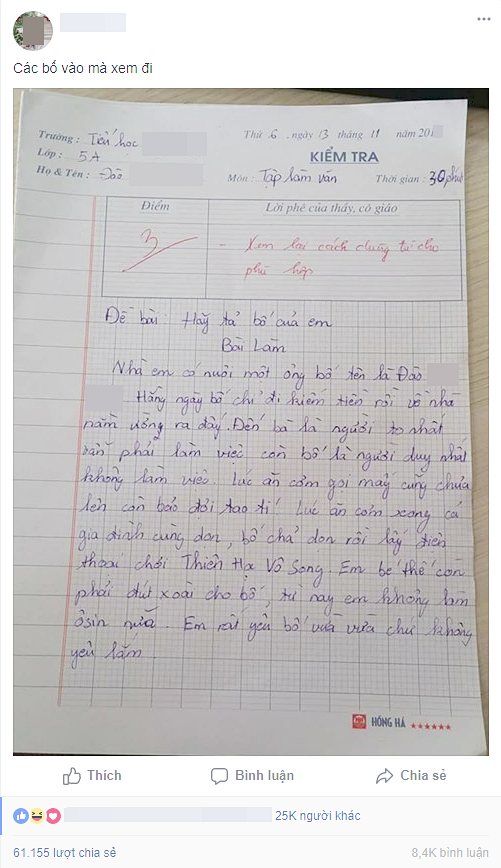 Các bố vào mà xem đi
Trường : Tiểu học
Thứ 6, ngày 13 tháng 11 năm 201
Lớp : 5A
KIỂM TRA
Họ & Tên : Đào
Môn : Tập làm văn Thời gian : 30 phút
Điểm
Lời phê của thầy, cô giáo
3
- Xem lại cách dùng từ cho
phù hợp
Đề bài: Hãy tả bố của em
Bài Làm
Nhà em có nuôi một ông bố tên là Đào
Hằng ngày bố chỉ đi kiếm tiền rồi về nhà
nằm ưỡng ra đấy. Đến bà là người to nhất
vẫn phải làm việc còn bố là người duy nhất
không làm việc. Lúc ăn cơm gọi mãy cũng chưa
lên còn bảo đợi tao tí! Lúc ăn cơm xong cả
gia đình cùng dọn, bố chả dọn rồi lấy điện
thoại chơi Thiên Hạ Vô Song. Em bé thế còn
phải đút xoài cho bố, từ nay em không làm
ôsin nữa. Em rất yêu bố vừa vừa chứ không
yêu lắm
HỒNG HÀ ★★★★★★
Thích
Bình luận
Chia sẻ
25K người khác
61.155 lượt chia sẻ
8,4K bình luận